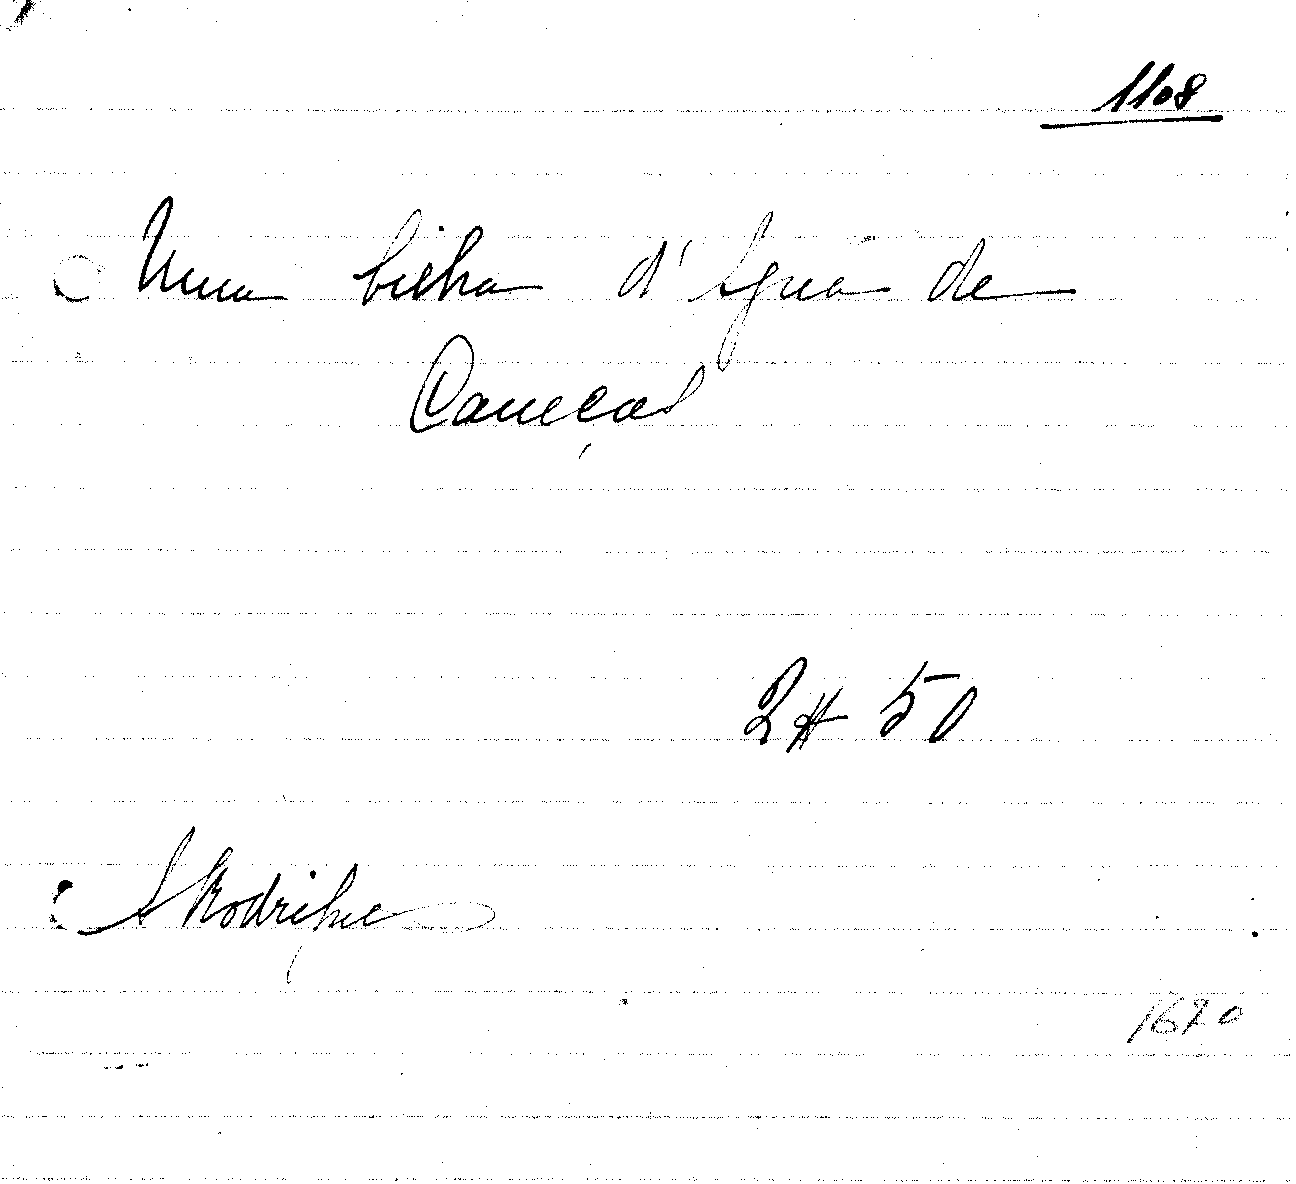 1108
Uma bilha d'Agua de
Caneças
2$50
A Rodrigues
1620